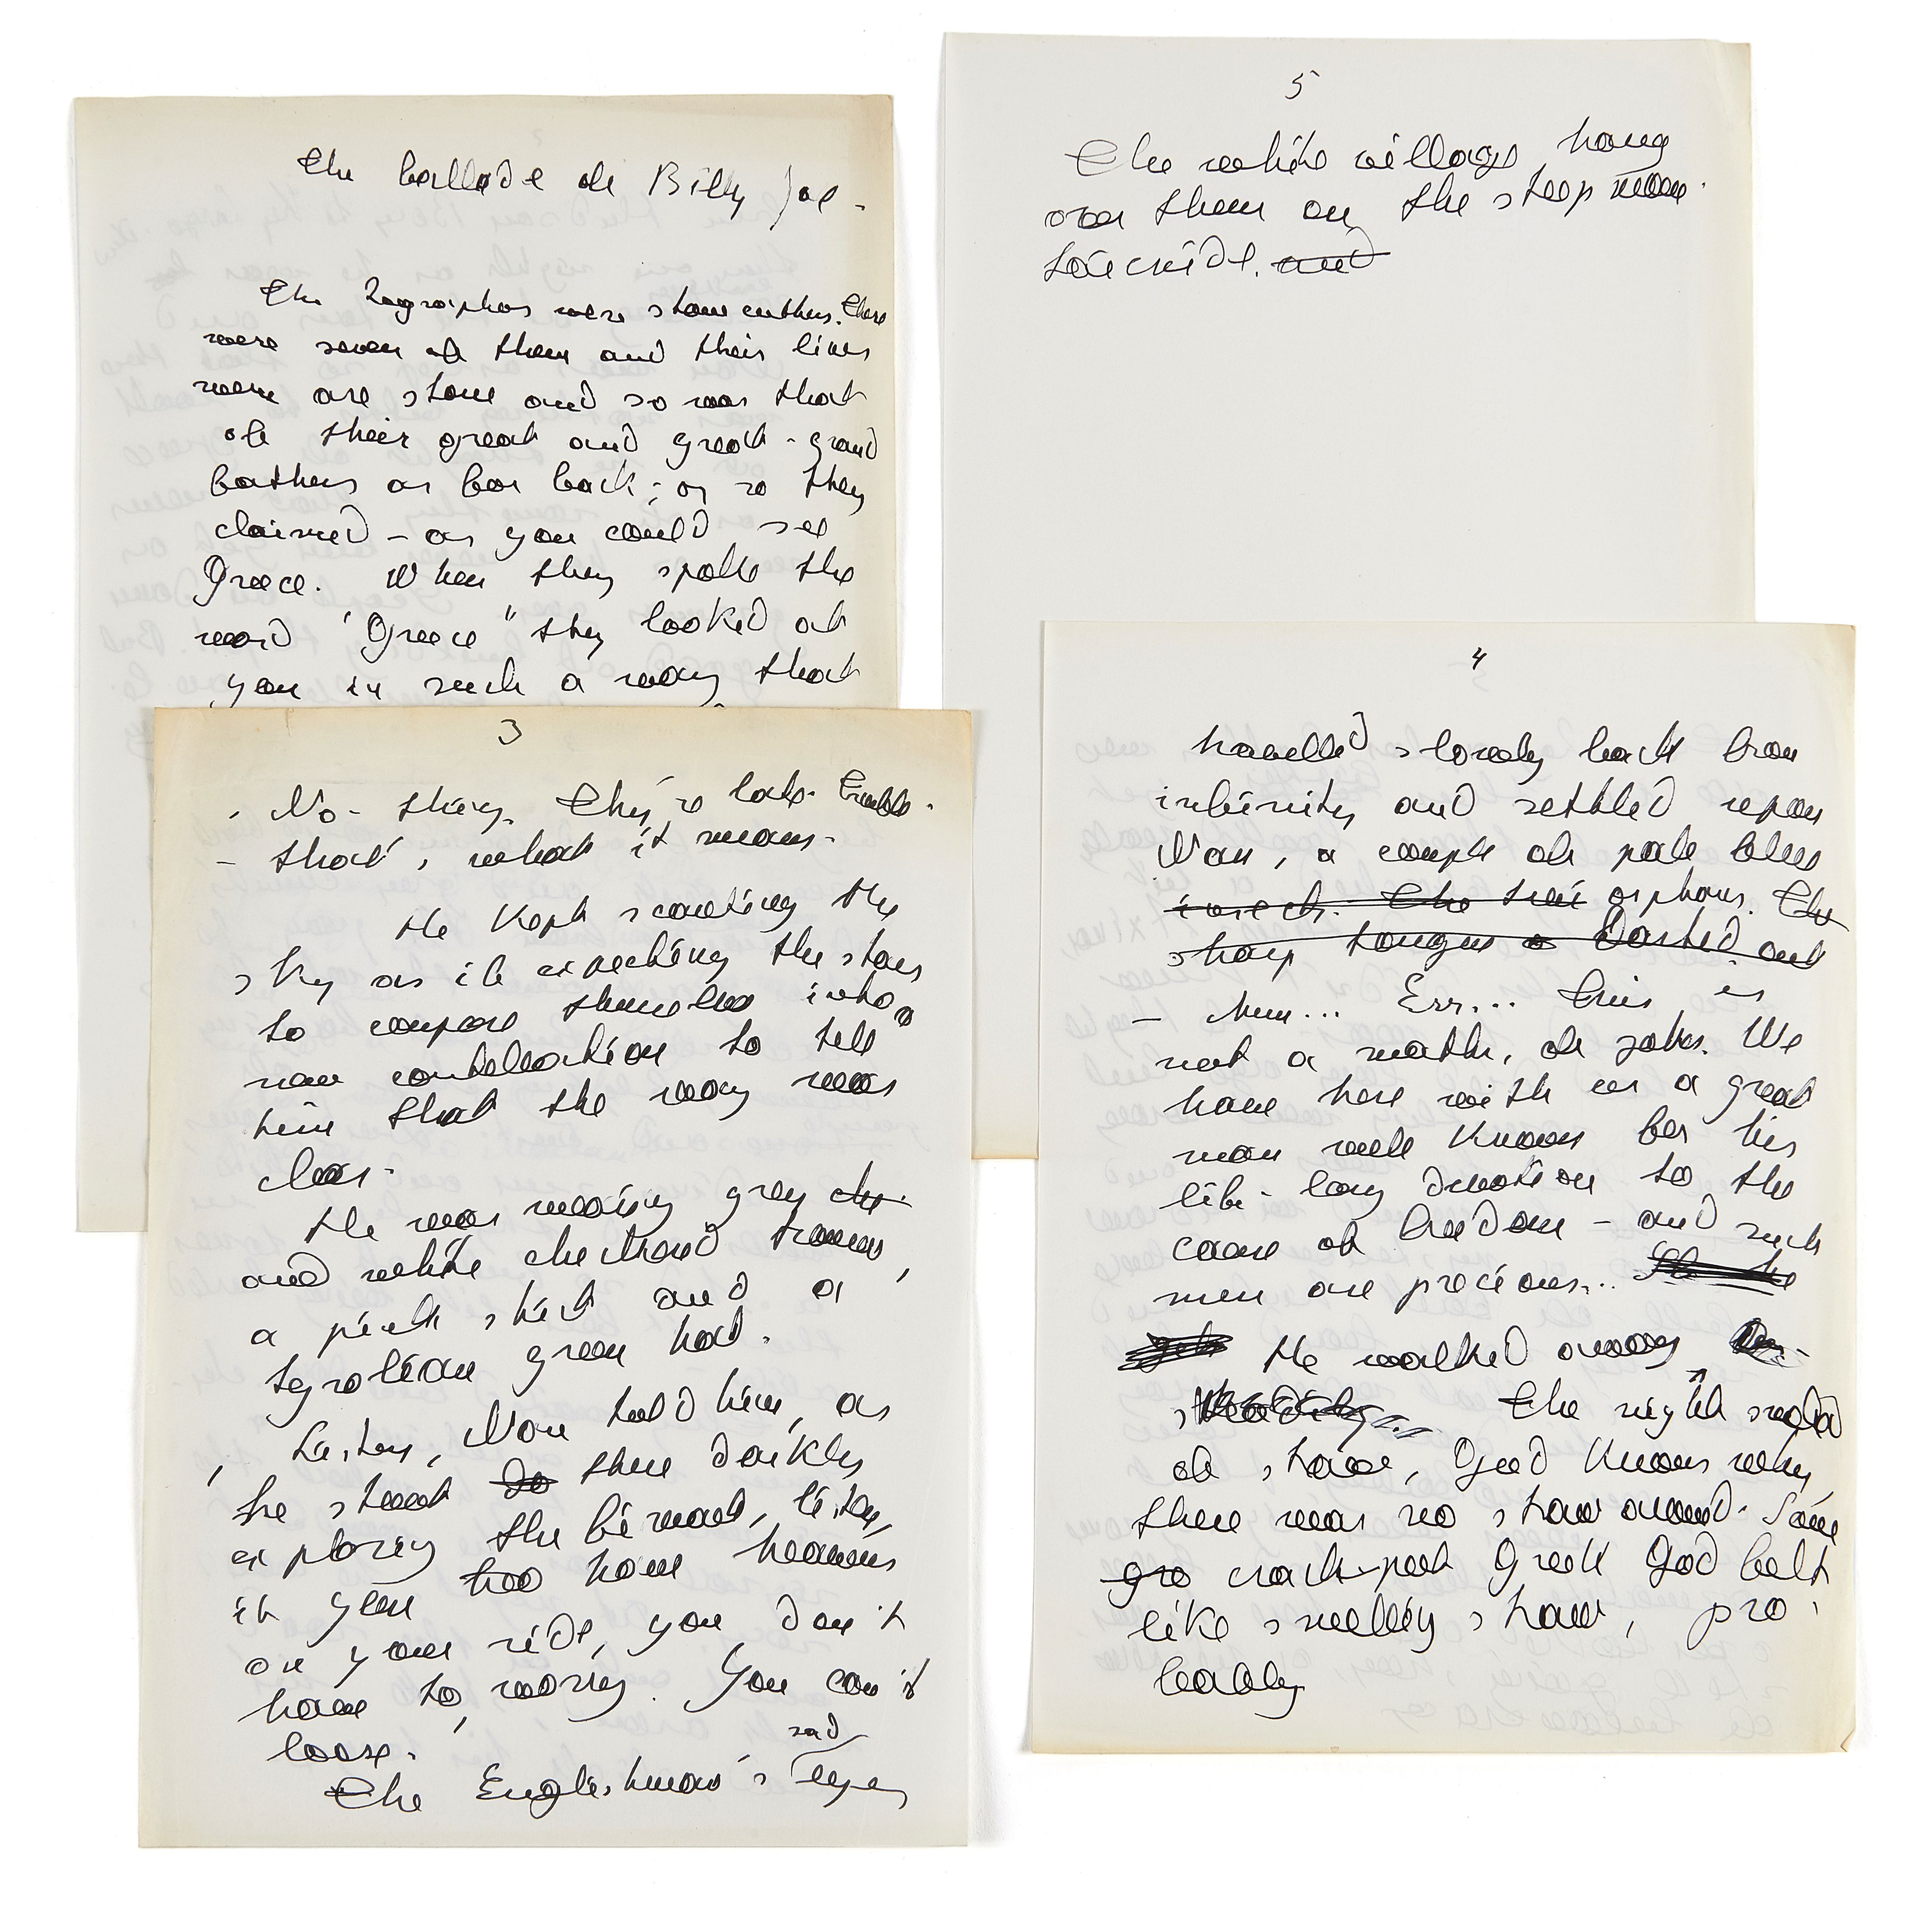 The ballade of Billy Joe -
The Zographos were stone cutters. There
were seven of them and their lives
were are stone and so was that
of their great and great-grand
fathers as far back; or so they
claimed - as you could see
Greece. When they spoke the
word "Greece" they looked at
you in such a way that
3
- No-thing. They're late. Trouble.
- that's what it means.
He kept scouting the
sky as if expecting the stars
to compose themselves into a
new contellation to tell
him that the way was
clear.
He was wearing grey che-
and white checkered trousers,
a pink shirt and a
tyrolian green hat.
Listen, Nan told him, as
he stood so there darkly
exploring the firmament, listen,
if you hoo have heavens
on your side, you don't
have to worry. You can't
loose.
sad
The Englishman's eyes
4
travelled slowly back from
infinity and settled upon
Nan, a couple of pale blue
insects. The two orphans. The
sharp tongue darted out
- Hum... Err... This is
not a matter of jokes. We
have here with us a great
man well known for his
life-long devotion to the
cause of freedom - and such
men are precious...
He walked away
The night smelled
of straw, God knows why,
there was no straw around. Some
gre crack-pot Greek God felt
like smelling straw, pro-
bably
5
The white village hung
over them on the steep moun-
tainside. and